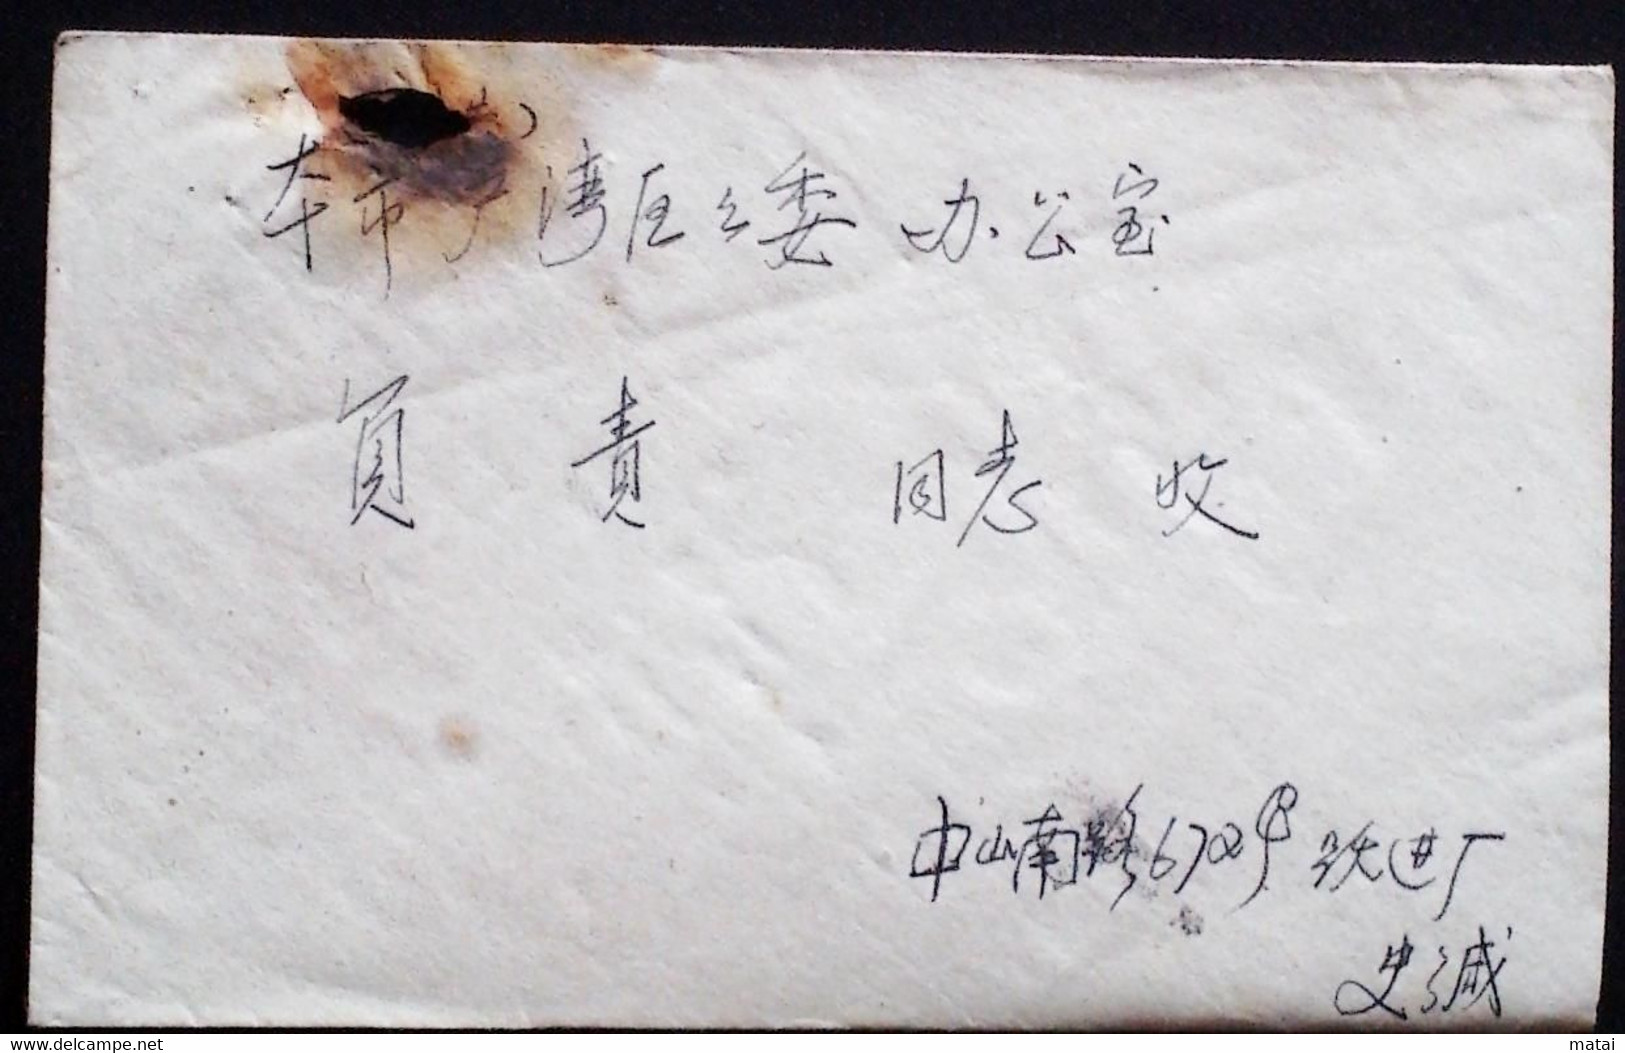 本市卢湾区公委 办公室
负责 同志 收
中山南路672号 跃进厂
史
www.delcampe.net
matai